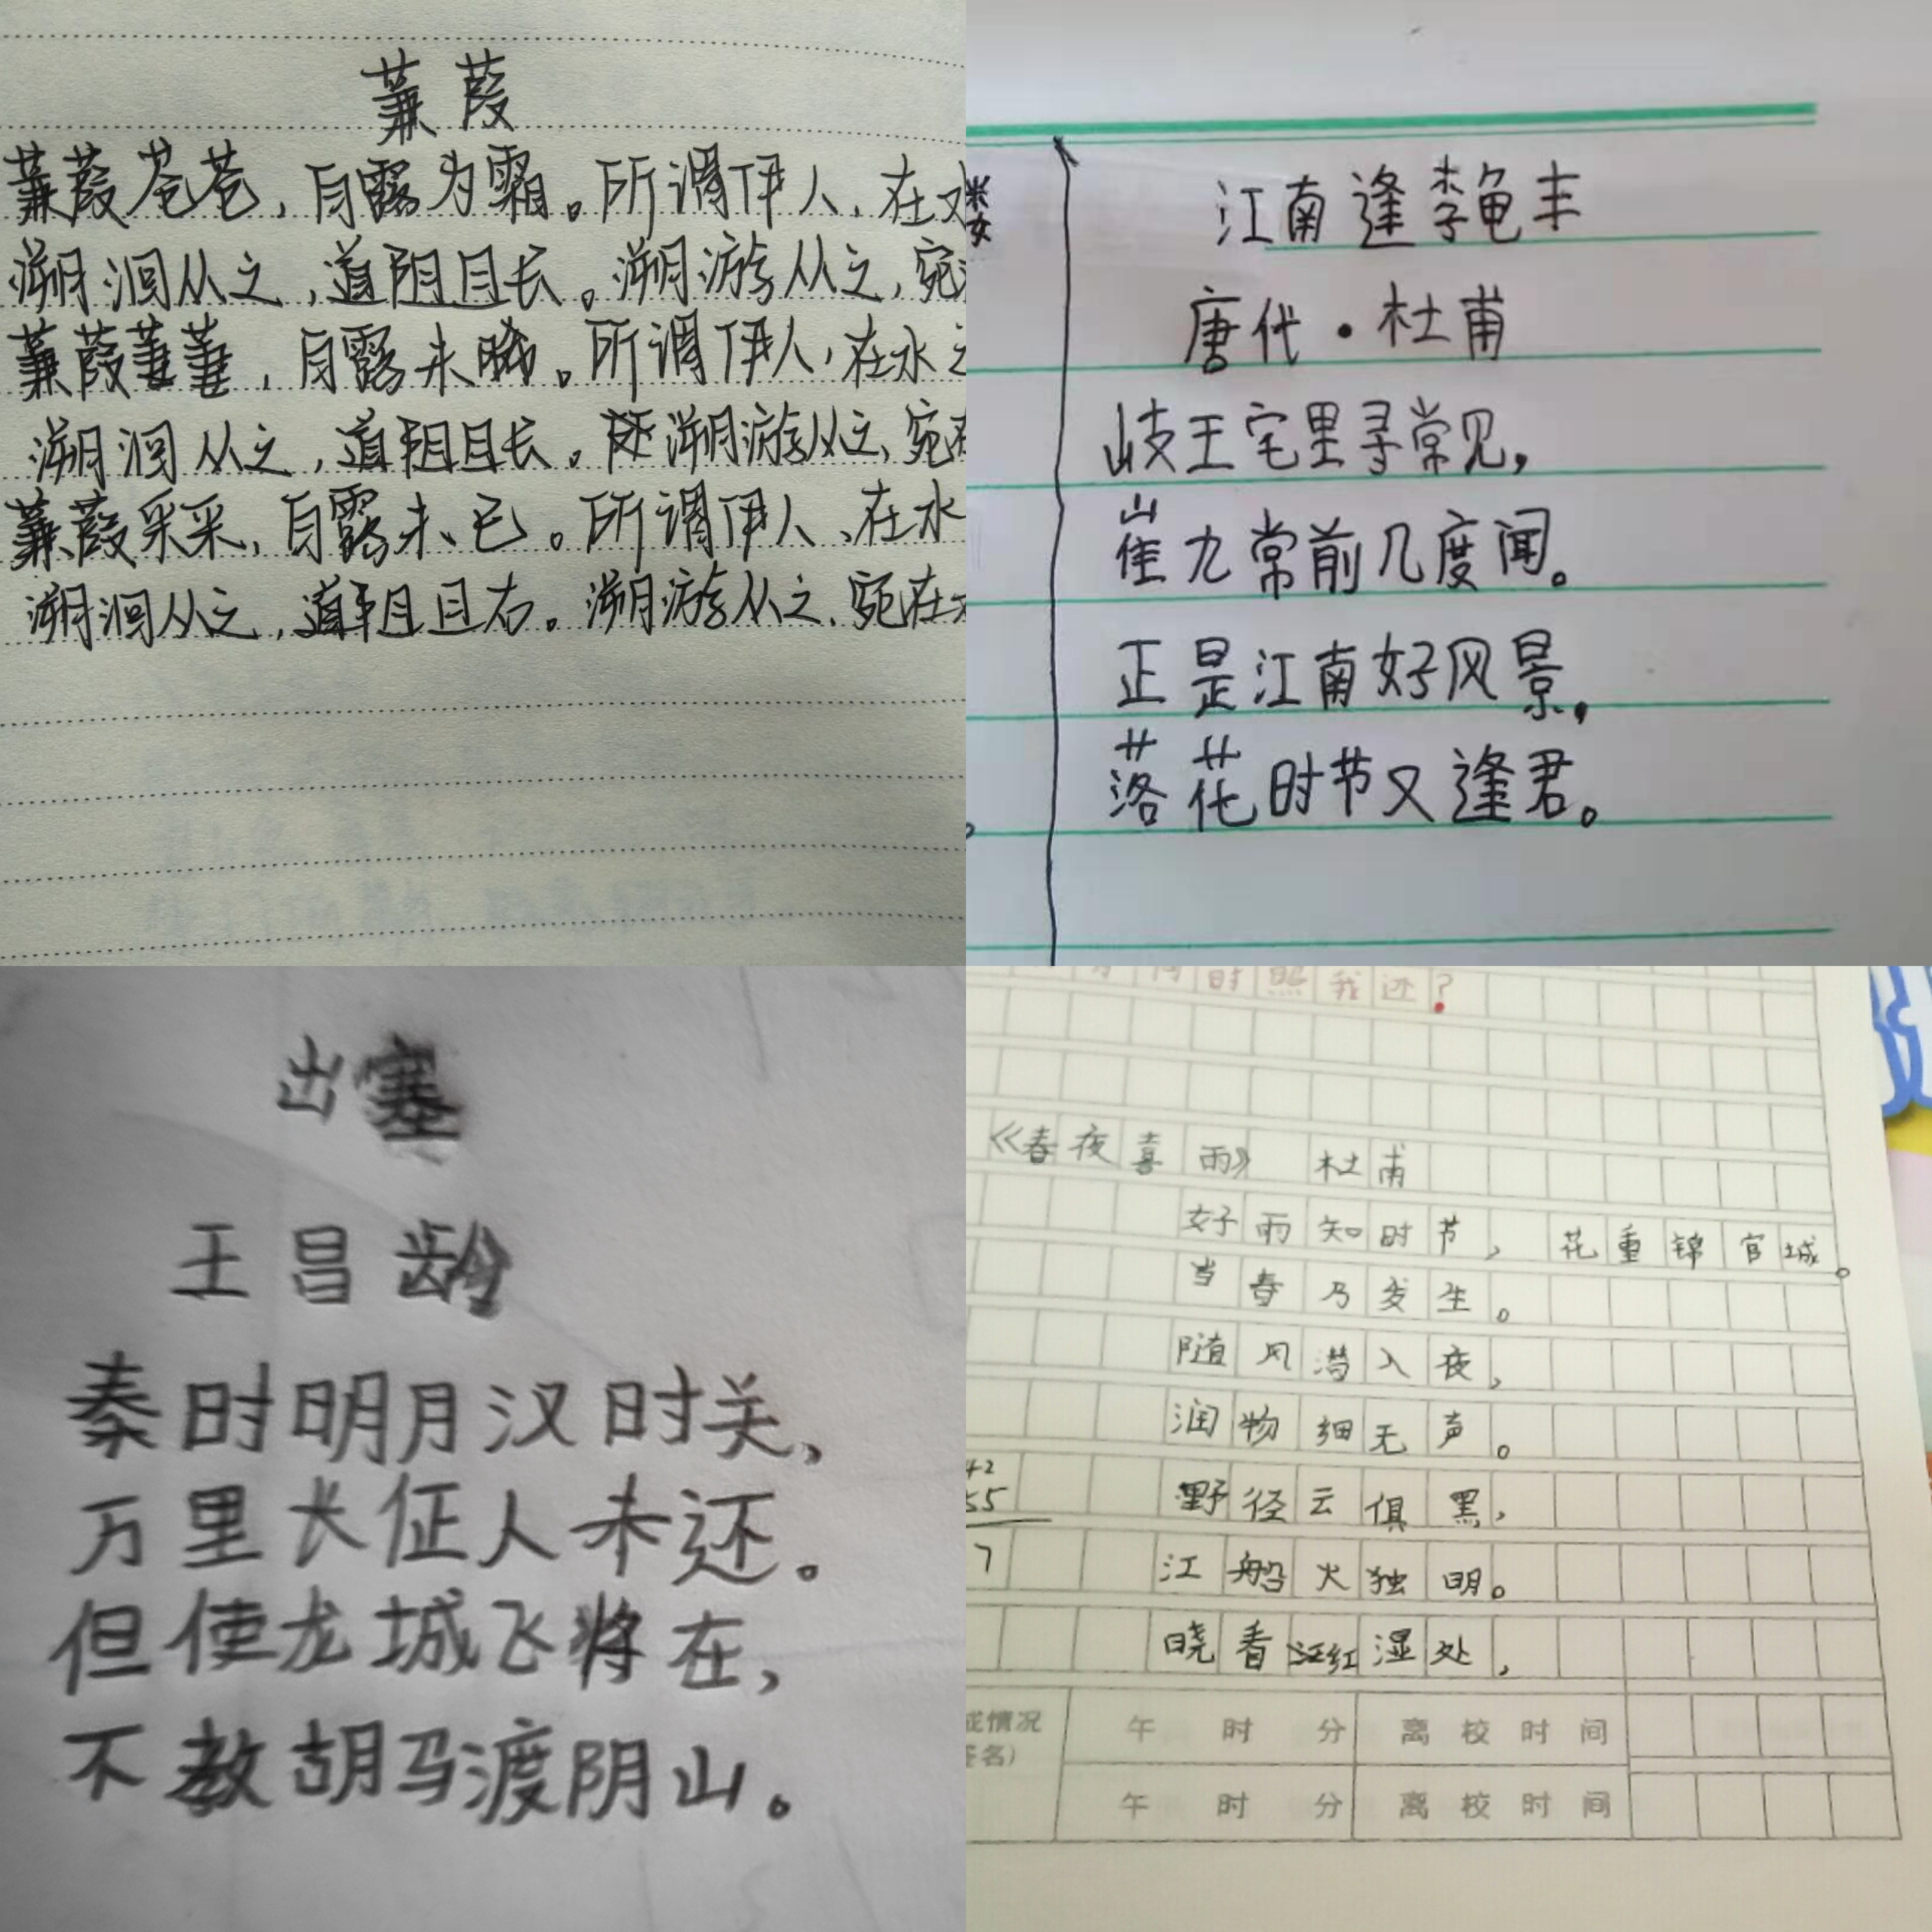 蒹葭
蒹葭苍苍，白露为霜。所谓伊人，在
溯洄从之，道阴且长。溯游从之，宛
蒹葭萋萋，白露未晞。所谓伊人，在水
溯洄从之，道阻且长。溯游从之，宛
蒹葭采采，白露未已。所谓伊人、在水
溯洄从之，道阻且右。溯游从之，宛在
江南逢李龟丰
唐代·杜甫
岐王宅里寻常见，
崔九常前几度闻。
正是江南好风景，
落花时节又逢君。
出塞
王昌龄
秦时明月汉时关，
万里长征人未还。
但使龙城飞将在，
不教胡马渡阴山。
时照我还？
《春夜喜雨》 杜甫
好雨知时节，花重锦官城。
当春乃发生。
随风潜入夜，
润物细无声。
野径云俱黑，
江船火独明。
晓看红湿处，
42
55
7
情况 午 时 分 离校时间
签名） 午 时 分 离校时间